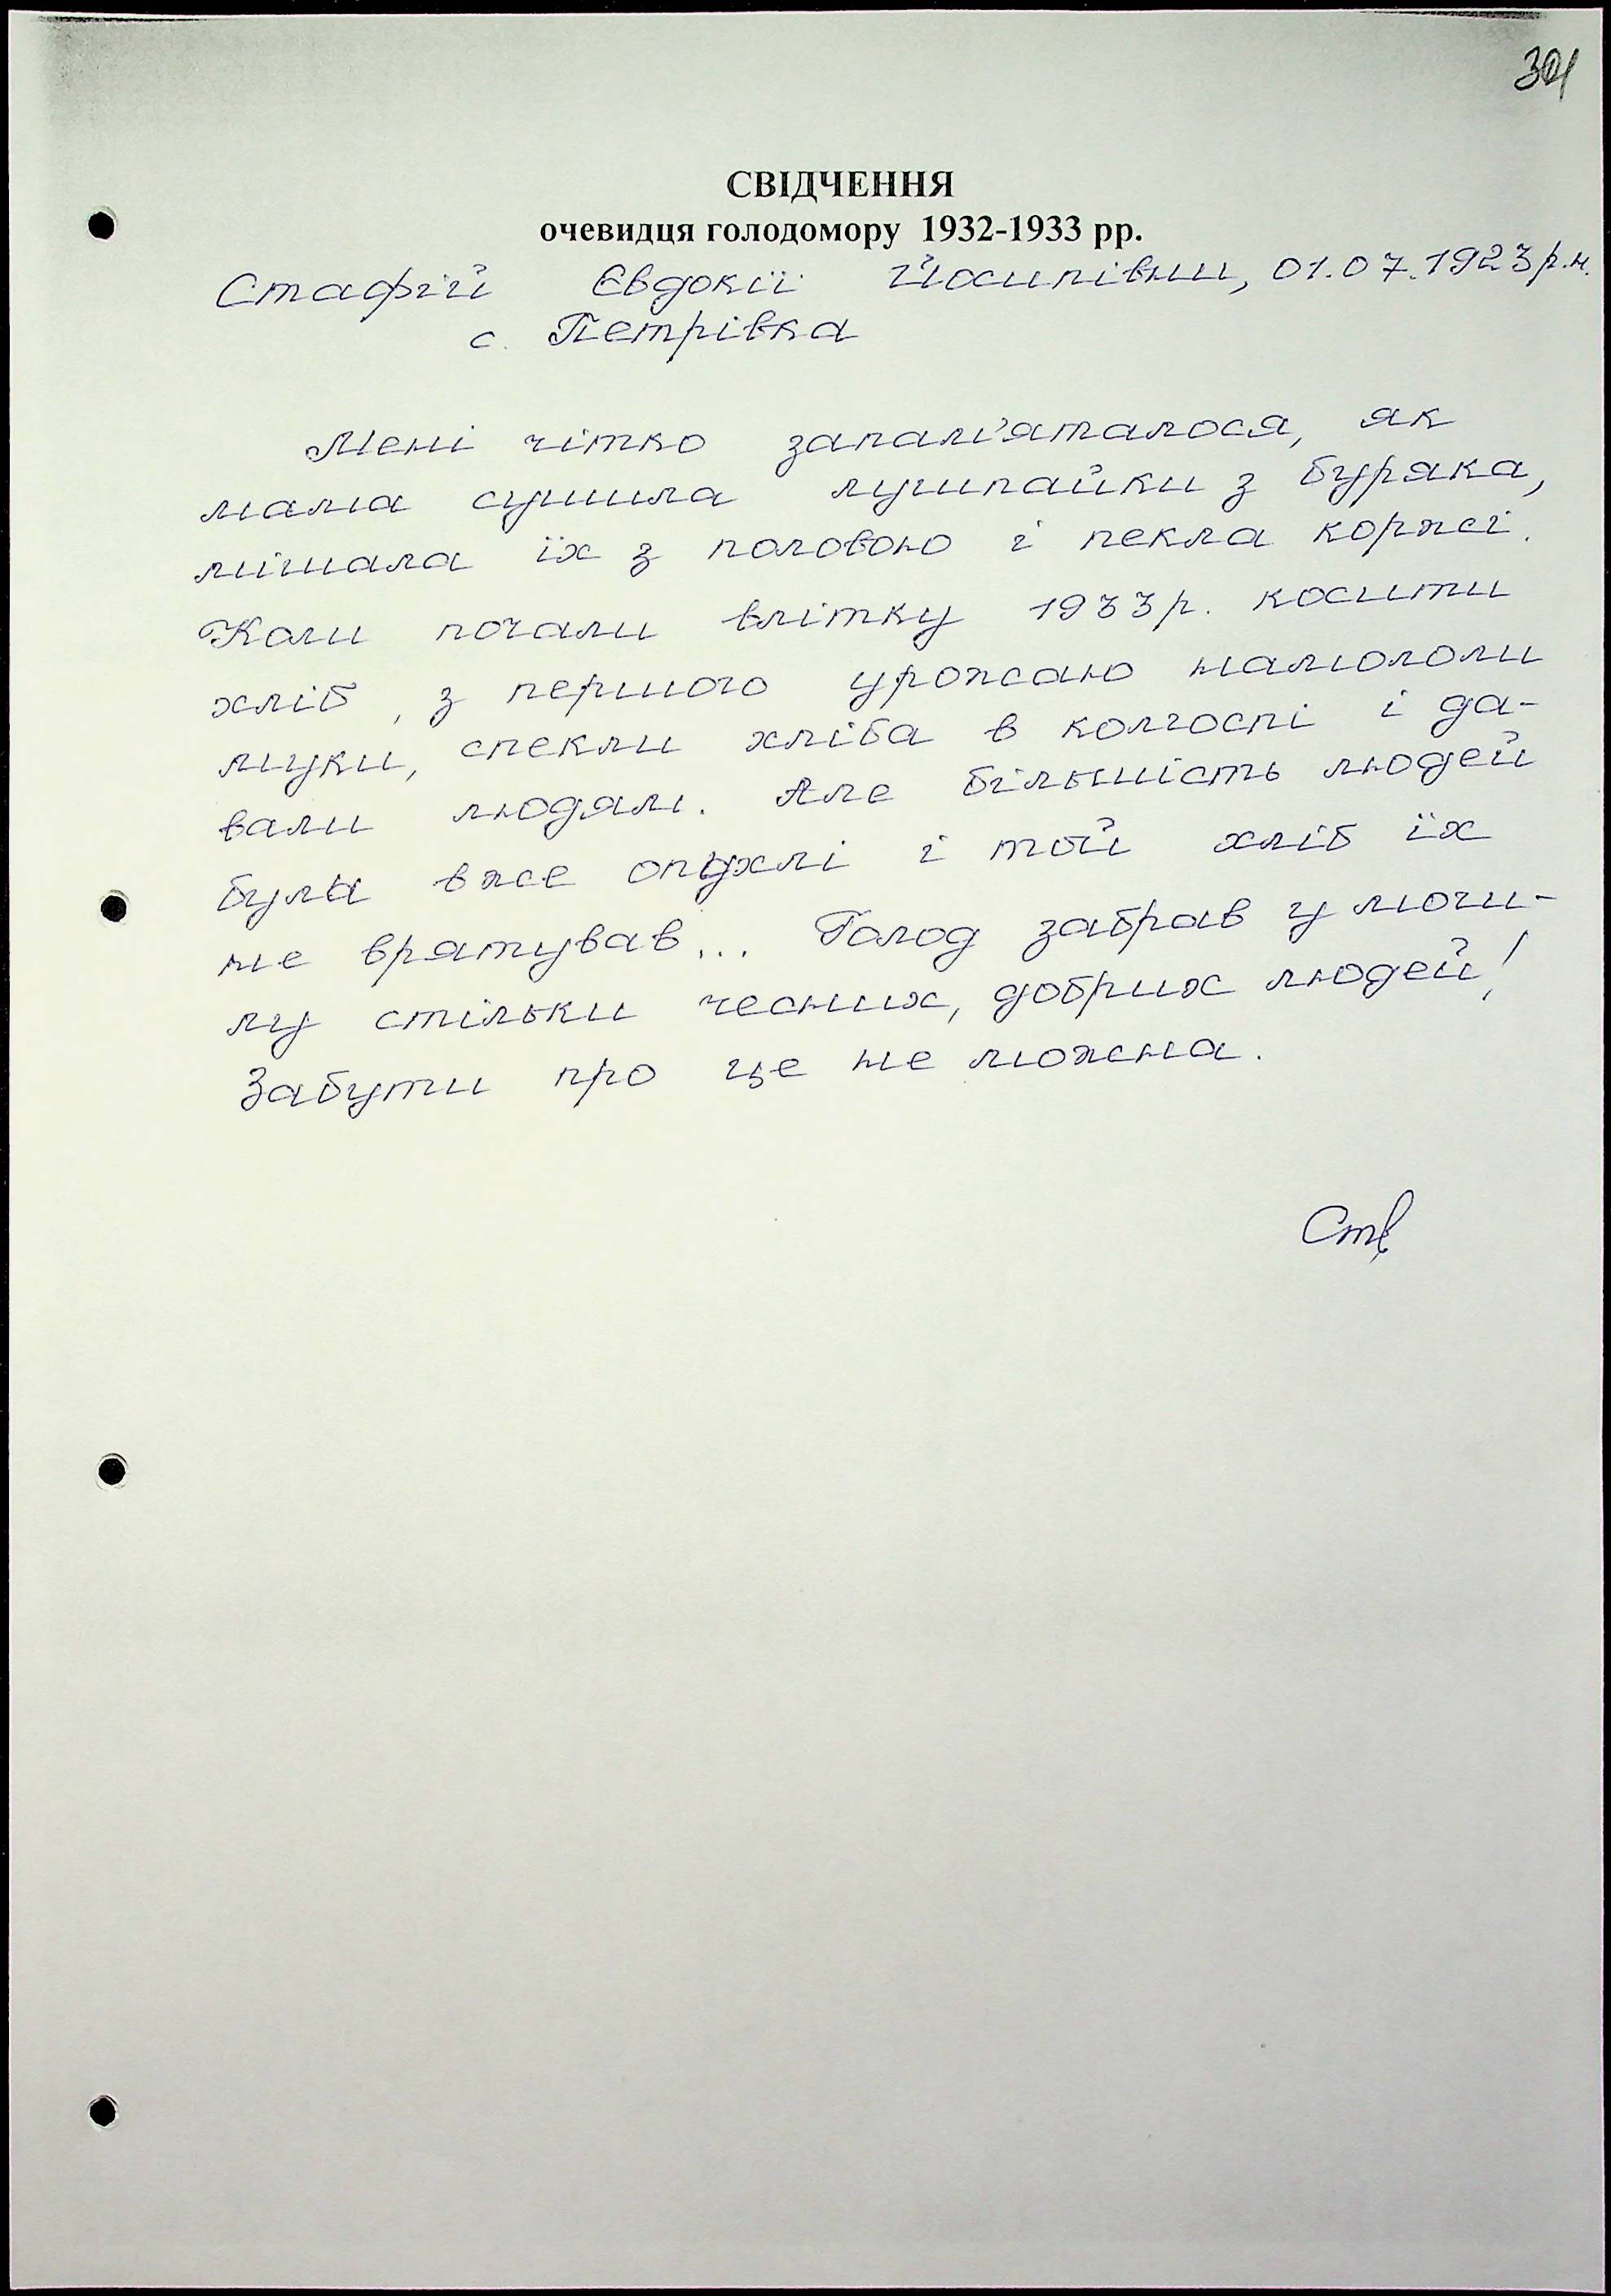 301
СВІДЧЕННЯ
очевидця голодомору 1932-1933 рр.
Стафій Євдокії Йосипівни, 01.07.1923 р.н.
с. Петрівка
Мені чітко запам'яталося, як
мама сушила лушпайки з буряка,
мішала їх з половою і пекла коржі.
Коли почали влітку 1933 р. косити
хліб, з першого урожаю намололи
муки, спекли хліба в колгоспі і да-
вали людям. Але більшість людей
були вже опухлі і той хліб їх
не врятував... Голод забрав у моги-
лу стільки чесних, добрих людей!
Забути про це не можна.